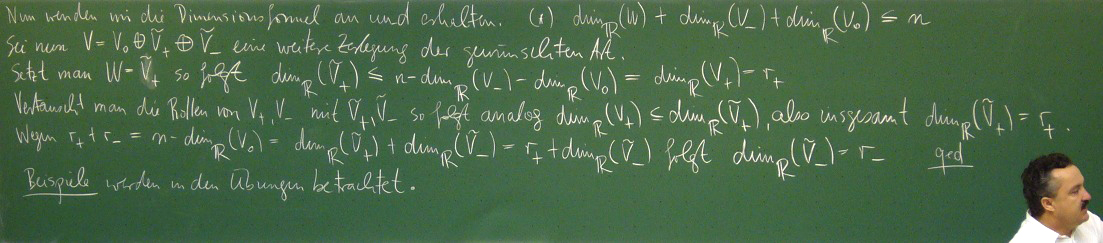 Nun wenden wir die Dimensionsformel an und erhalten. (*) dim_ℝ(W) + dim_ℝ(V₋) + dim_ℝ(V₀) ≤ n
Sei nun V = V₀ ⊕ Ṽ₊ ⊕ Ṽ₋ eine weitere Zerlegung der gewünschten Art.
Setzt man W = Ṽ₊ so folgt dim_ℝ(Ṽ₊) ≤ n - dim_ℝ(V₋) - dim_ℝ(V₀) = dim_ℝ(V₊) = r₊
Vertauscht man die Rollen von V₊, V₋ mit Ṽ₊, Ṽ₋ so folgt analog dim_ℝ(V₊) ≤ dim_ℝ(Ṽ₊), also insgesamt dim_ℝ(Ṽ₊) = r₊.
Wegen r₊ + r₋ = n - dim_ℝ(V₀) = dim_ℝ(Ṽ₊) + dim_ℝ(Ṽ₋) = r₊ + dim_ℝ(Ṽ₋) folgt dim_ℝ(Ṽ₋) = r₋ qed
Beispiele werden in den Übungen betrachtet.